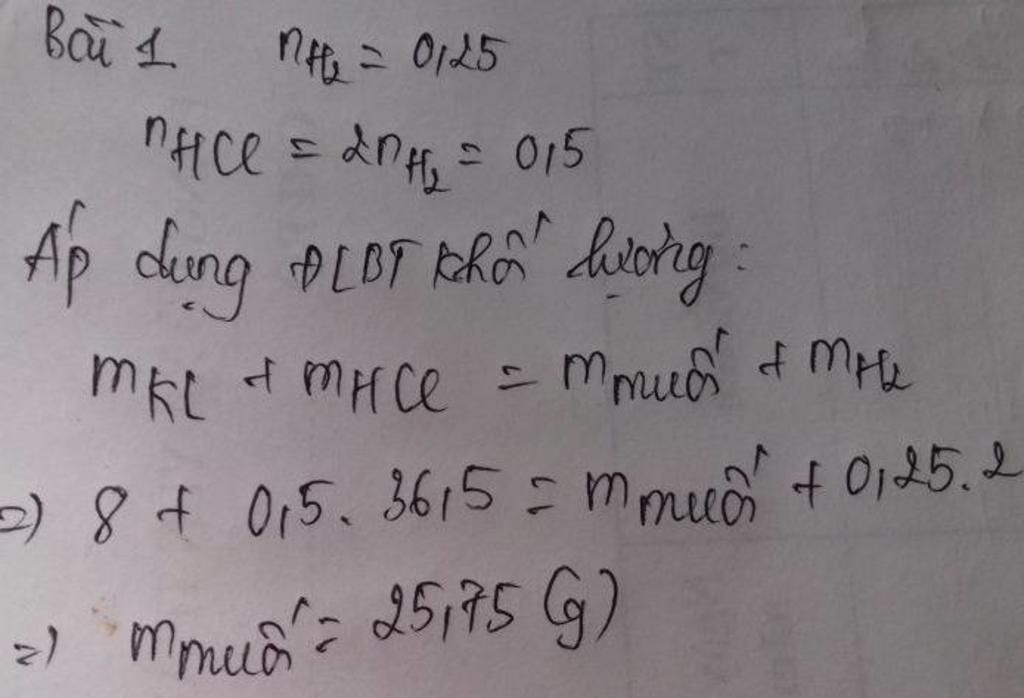 Bài 1 nH₂ = 0,25
nHCl = 2nH₂ = 0,5
Áp dụng ĐLBT khối lượng:
mKL + mHCl = mmuối + mH₂
=) 8 + 0,5. 36,5 = mmuối + 0,25.2
=) mmuối = 25,75 (g)